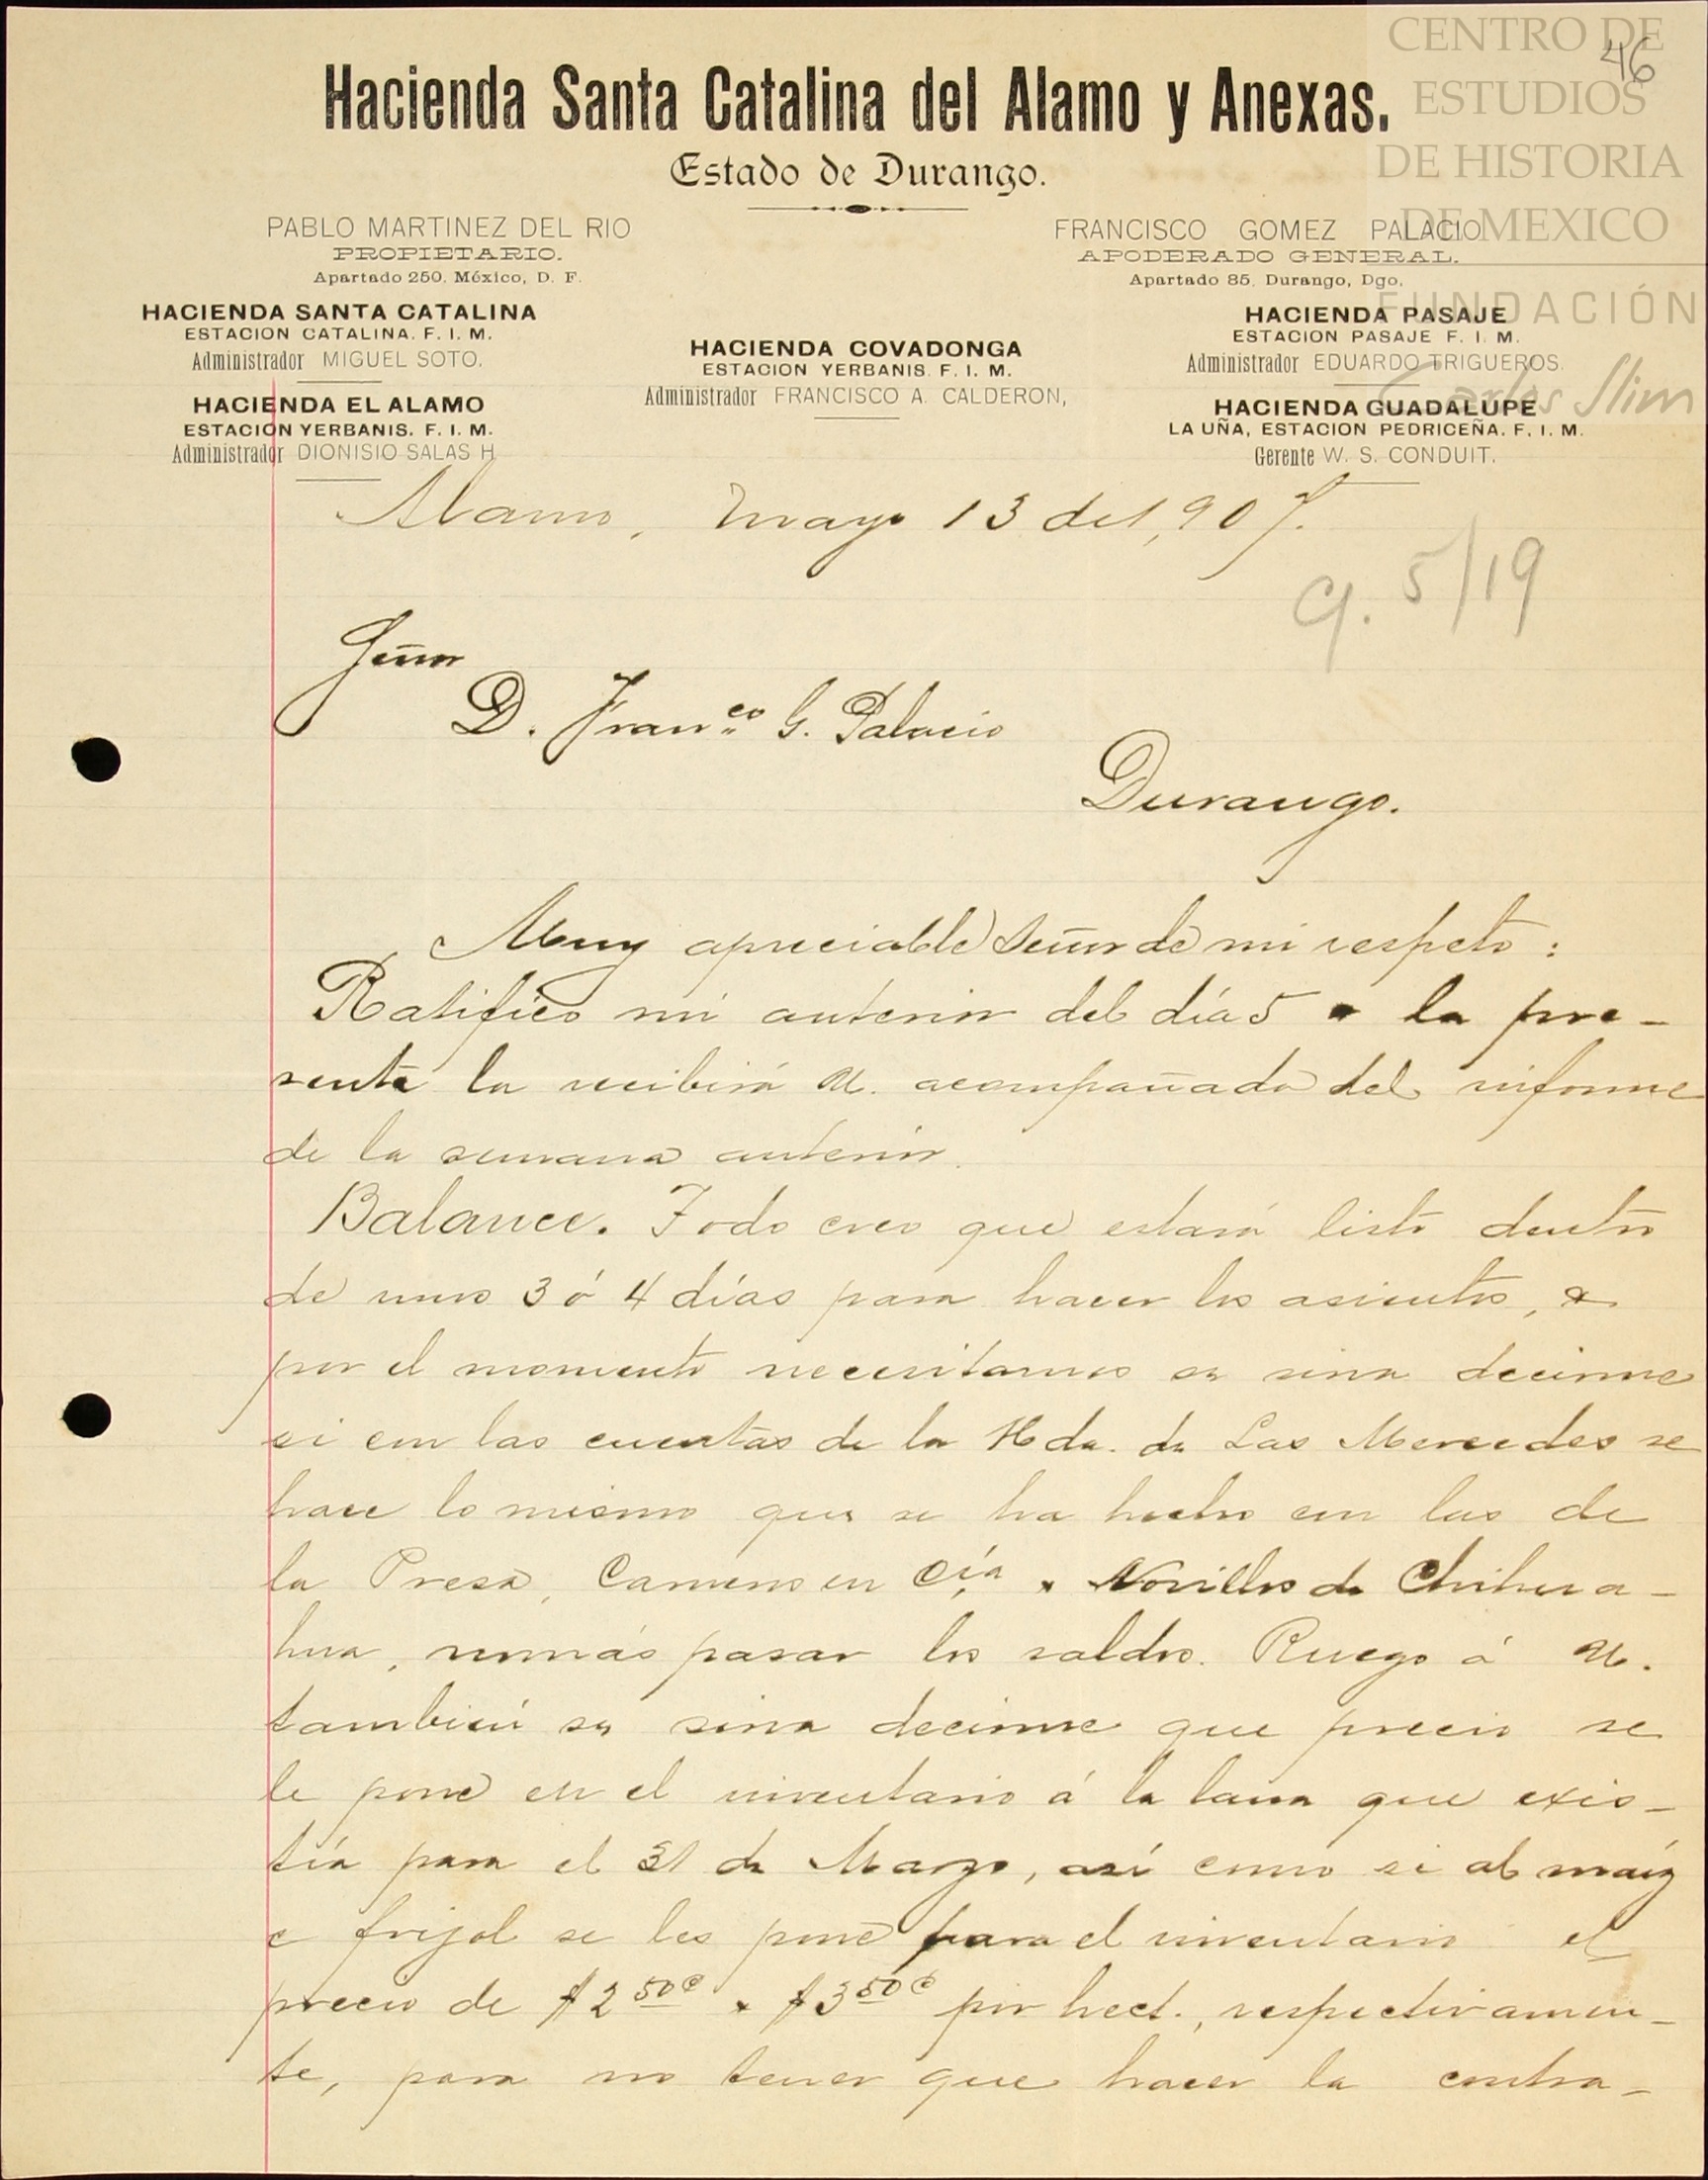 CENTRO DE
ESTUDIOS
DE HISTORIA
DE MEXICO
FUNDACIÓN
Carlos Slim
46
Hacienda Santa Catalina del Alamo y Anexas.
Estado de Durango.
PABLO MARTINEZ DEL RIO
PROPIETARIO.
Apartado 250, México, D. F.
FRANCISCO GOMEZ PALACIO
APODERADO GENERAL.
Apartado 85, Durango, Dgo,
HACIENDA SANTA CATALINA
ESTACION CATALINA. F. I. M.
Administrador MIGUEL SOTO.
HACIENDA EL ALAMO
ESTACION YERBANIS. F. I. M.
Administrador DIONISIO SALAS H
HACIENDA COVADONGA
ESTACION YERBANIS. F. I. M.
Administrador FRANCISCO A. CALDERON,
HACIENDA PASAJE
ESTACION PASAJE F. I. M.
Administrador EDUARDO TRIGUEROS.
HACIENDA GUADALUPE
LA UÑA, ESTACION PEDRICEÑA. F. I. M.
Gerente W. S. CONDUIT.
Alamo, Mayo 13 de 1,907.
C/. 5/19
Señor
D. Franco G. Palacio
Durango.
Muy apreciable Señor de mi respeto:
Ratifico mi anterior del día 5 la pre-
sente la recibirá U. acompañada del informe
de la semana anterior.
Balance. Todo creo que estará listo dentro
de unos 3 ó 4 días para hacer los asientos,
por el momento necesitamos se sirva decirme
si con las cuentas de la Hda. de Las Mercedes se
hace lo mismo que se ha hecho con las de
la Presa, Carneros en Cía Novillos de Chihua-
hua, nomás pasar los saldos. Ruego á U.
también se sirva decirme que precio se
le pone en el inventario á la lana que exis-
tía para el 31 de Marzo, así como si al maíz
e frijol se les pone para el inventario el
precio de $2 50c $3 50c por hect., respectivamen-
te, para no tener que hacer la contra-